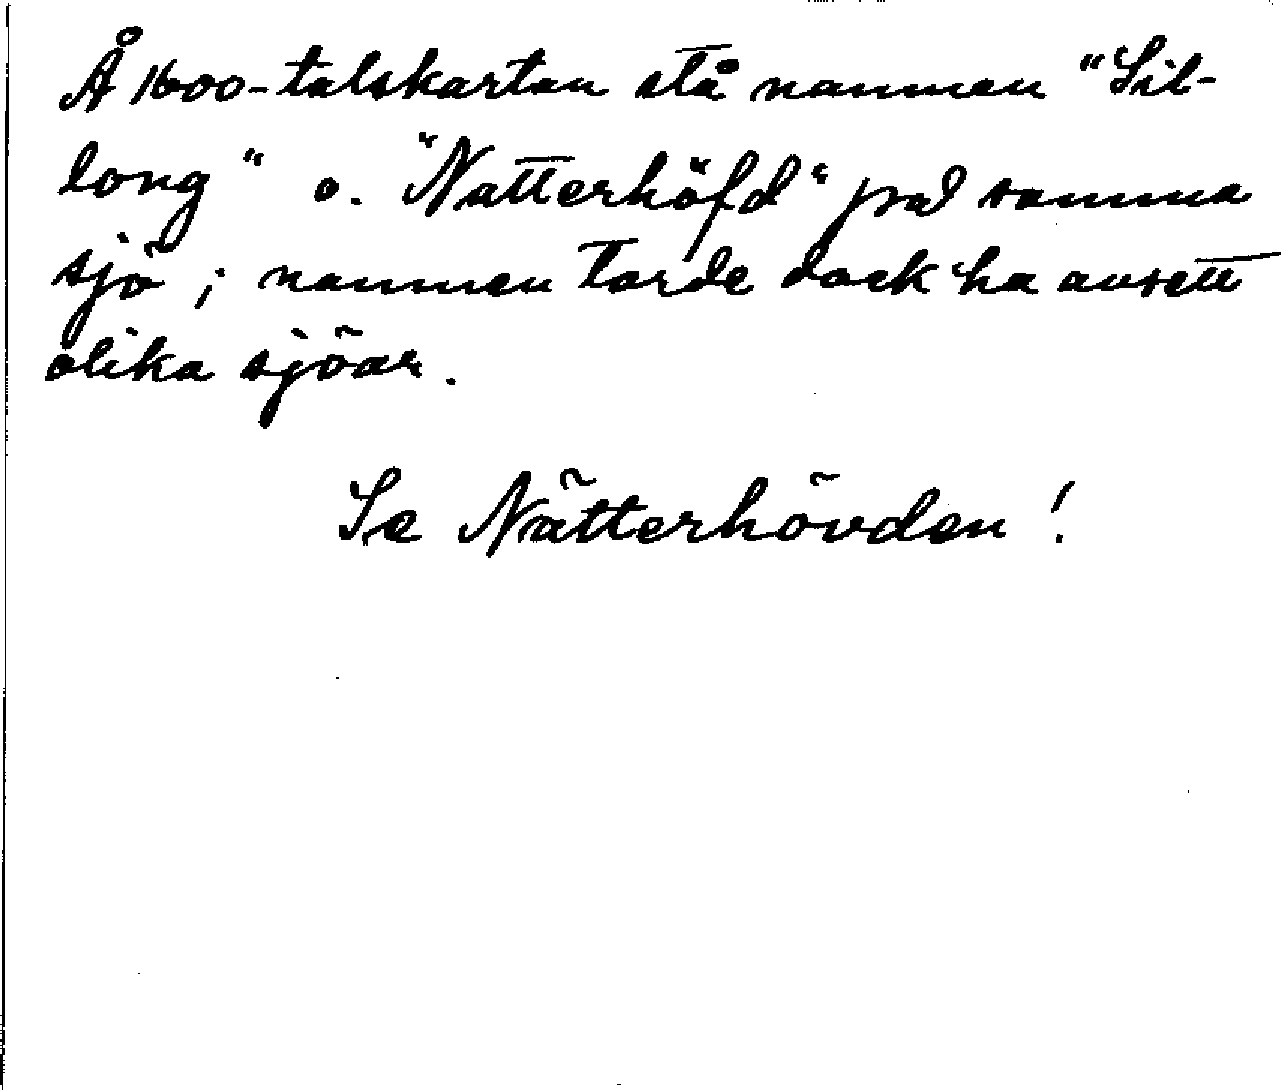 Å 1600-talskartan stå namnen "Sil-
long" o. "Natterhöfd" på samma
sjö; namnen torde dock ha avsett
olika sjöar.
Se Nätterhövden!